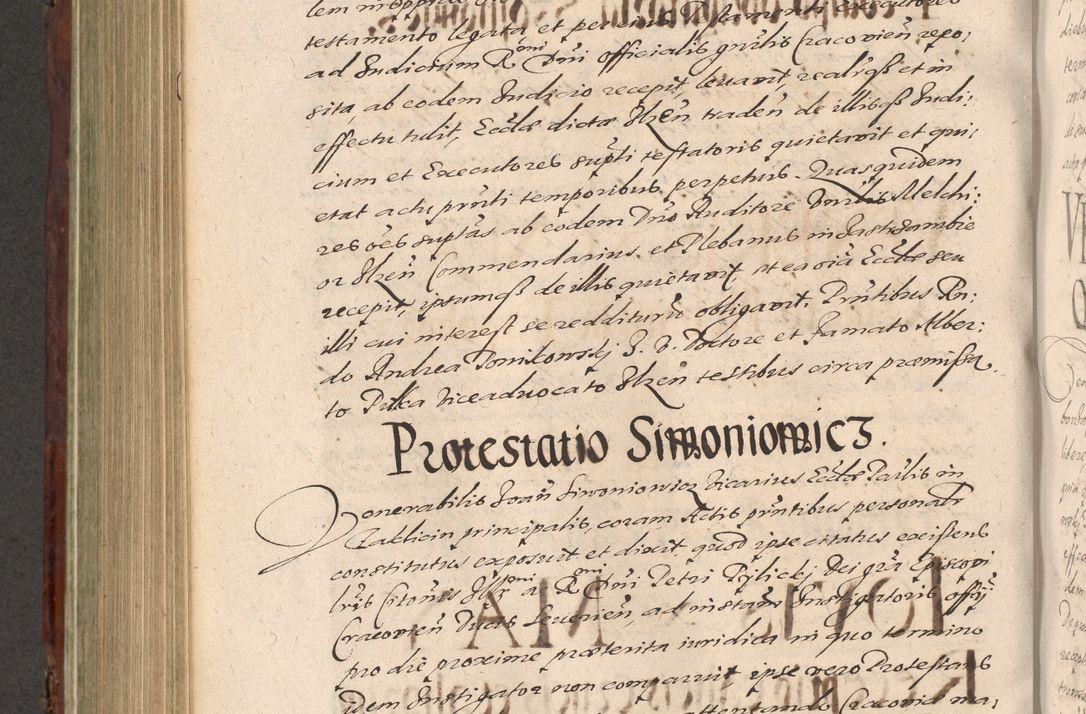 testamento legata et per eius Testamenti executores
ad Iudicium Rmi Dni Officialis gnrlis Cracovien repo,
sita, ab eodem Iudicio recepit, levavit, realrqs et in
effectu tulit, Ecclae dictae Ilzen traden de illisqs Iudi,
cium et Executores supti testatoris quietavit et qui,
etat actu pnti temporibus perpetuis. Quasquidem
res oes suptas ab eodem Dno Auditore Vnrlis Melchi:
or Ilzen Commendarius et Plebanus in Jastrzambie
recepit, ipsumqs de illis quietavit et ea oia Ecclae seu
illi cui interest se redditurum obligavit. Pntibus Rn:
do Andrea Tomikowskj I. V. Doctore et Famato Alber:
to Pilka Viceadvocato Ilzen testibus circa praemissa.
Protestatio Simoniowicz.
Venerabilis Joan Simoniowicz Vicarius Ecclae Parlis in
Zaklicin principalis, coram Actis pntibus personalr
constitutus exposuit et dixit quod ipse citatus existens
lris Citoriis Illri ac Rmi Dni Petri Tylickj Dei gra Episcopi
Cracovien Ducis Severien, ad instam Instigatoris offii
pro die proxime praeterita iuridica in quo termino
idem Instigator non comparuit ipse vero Protestans